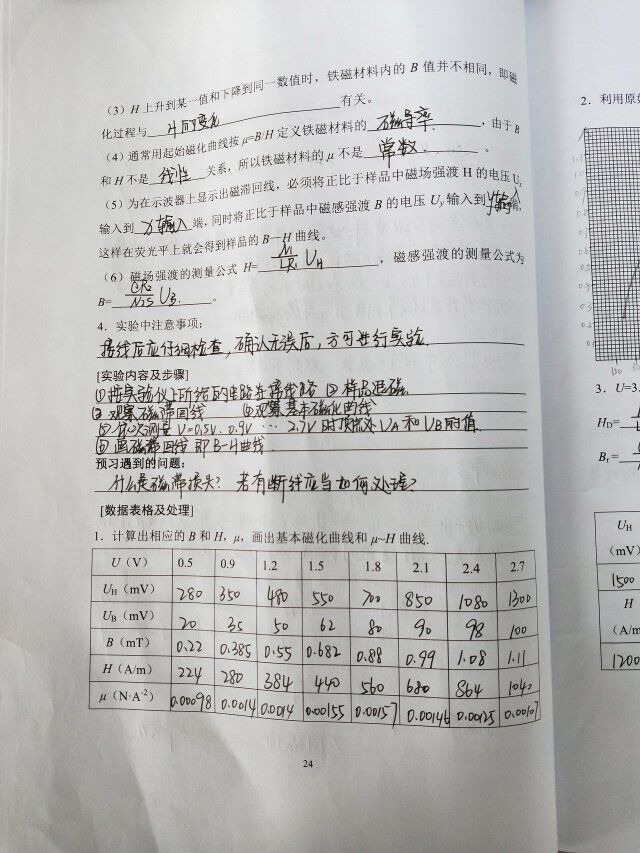 （3）H 上升到某一值和下降到同一数值时，铁磁材料内的 B 值并不相同，即磁
化过程与 时间变化 有关。
（4）通常用起始磁化曲线按 μ=B/H 定义铁磁材料的 磁导率 ，由于 B
和 H 不是 线性 关系，所以铁磁材料的 μ 不是 常数 。
（5）为在示波器上显示出磁滞回线，必须将正比于样品中磁场强渡 H 的电压 Ux
输入到 X输入 端，同时将正比于样品中磁感强渡 B 的电压 Uy 输入到 Y输入 端，
这样在荧光平上就会得到样品的 B—H 曲线。
（6）磁场强渡的测量公式 H= N1/LR1 UH ，磁感强渡的测量公式为
B= CR2/N2S UB 。
4．实验中注意事项：
接线后应仔细检查，确认无误后，方可进行实验.
[实验内容及步骤]
①按实验仪上所给的电路连接线路 ②样品退磁.
③观察磁滞回线 ④观察基本磁化曲线
⑤依次测量 U=0.5V. 0.9V … 2.7V 时顶点处 UA 和 UB 的值.
⑥画磁滞回线 即 B-H曲线.
预习遇到的问题：
什么是磁滞损失？ 若有断线应当如何处理？
[数据表格及处理]
1．计算出相应的 B 和 H，μ，画出基本磁化曲线和 μ~H 曲线.
U（V） 0.5 0.9 1.2 1.5 1.8 2.1 2.4 2.7
UH（mV） 280 350 480 550 700 850 1080 1300
UB（mV） 20 35 50 62 80 90 98 100
B（mT） 0.22 0.385 0.55 0.682 0.88 0.99 1.08 1.11
H（A/m） 224 280 384 440 560 680 864 1040
μ（N·A⁻²） 0.00098 0.0014 0.0014 0.00155 0.00157 0.00146 0.00125 0.00107
24
2．利用原始
3．U=3.
HD=
Br=
UH
（mV）
1500
H
（A/m
1200